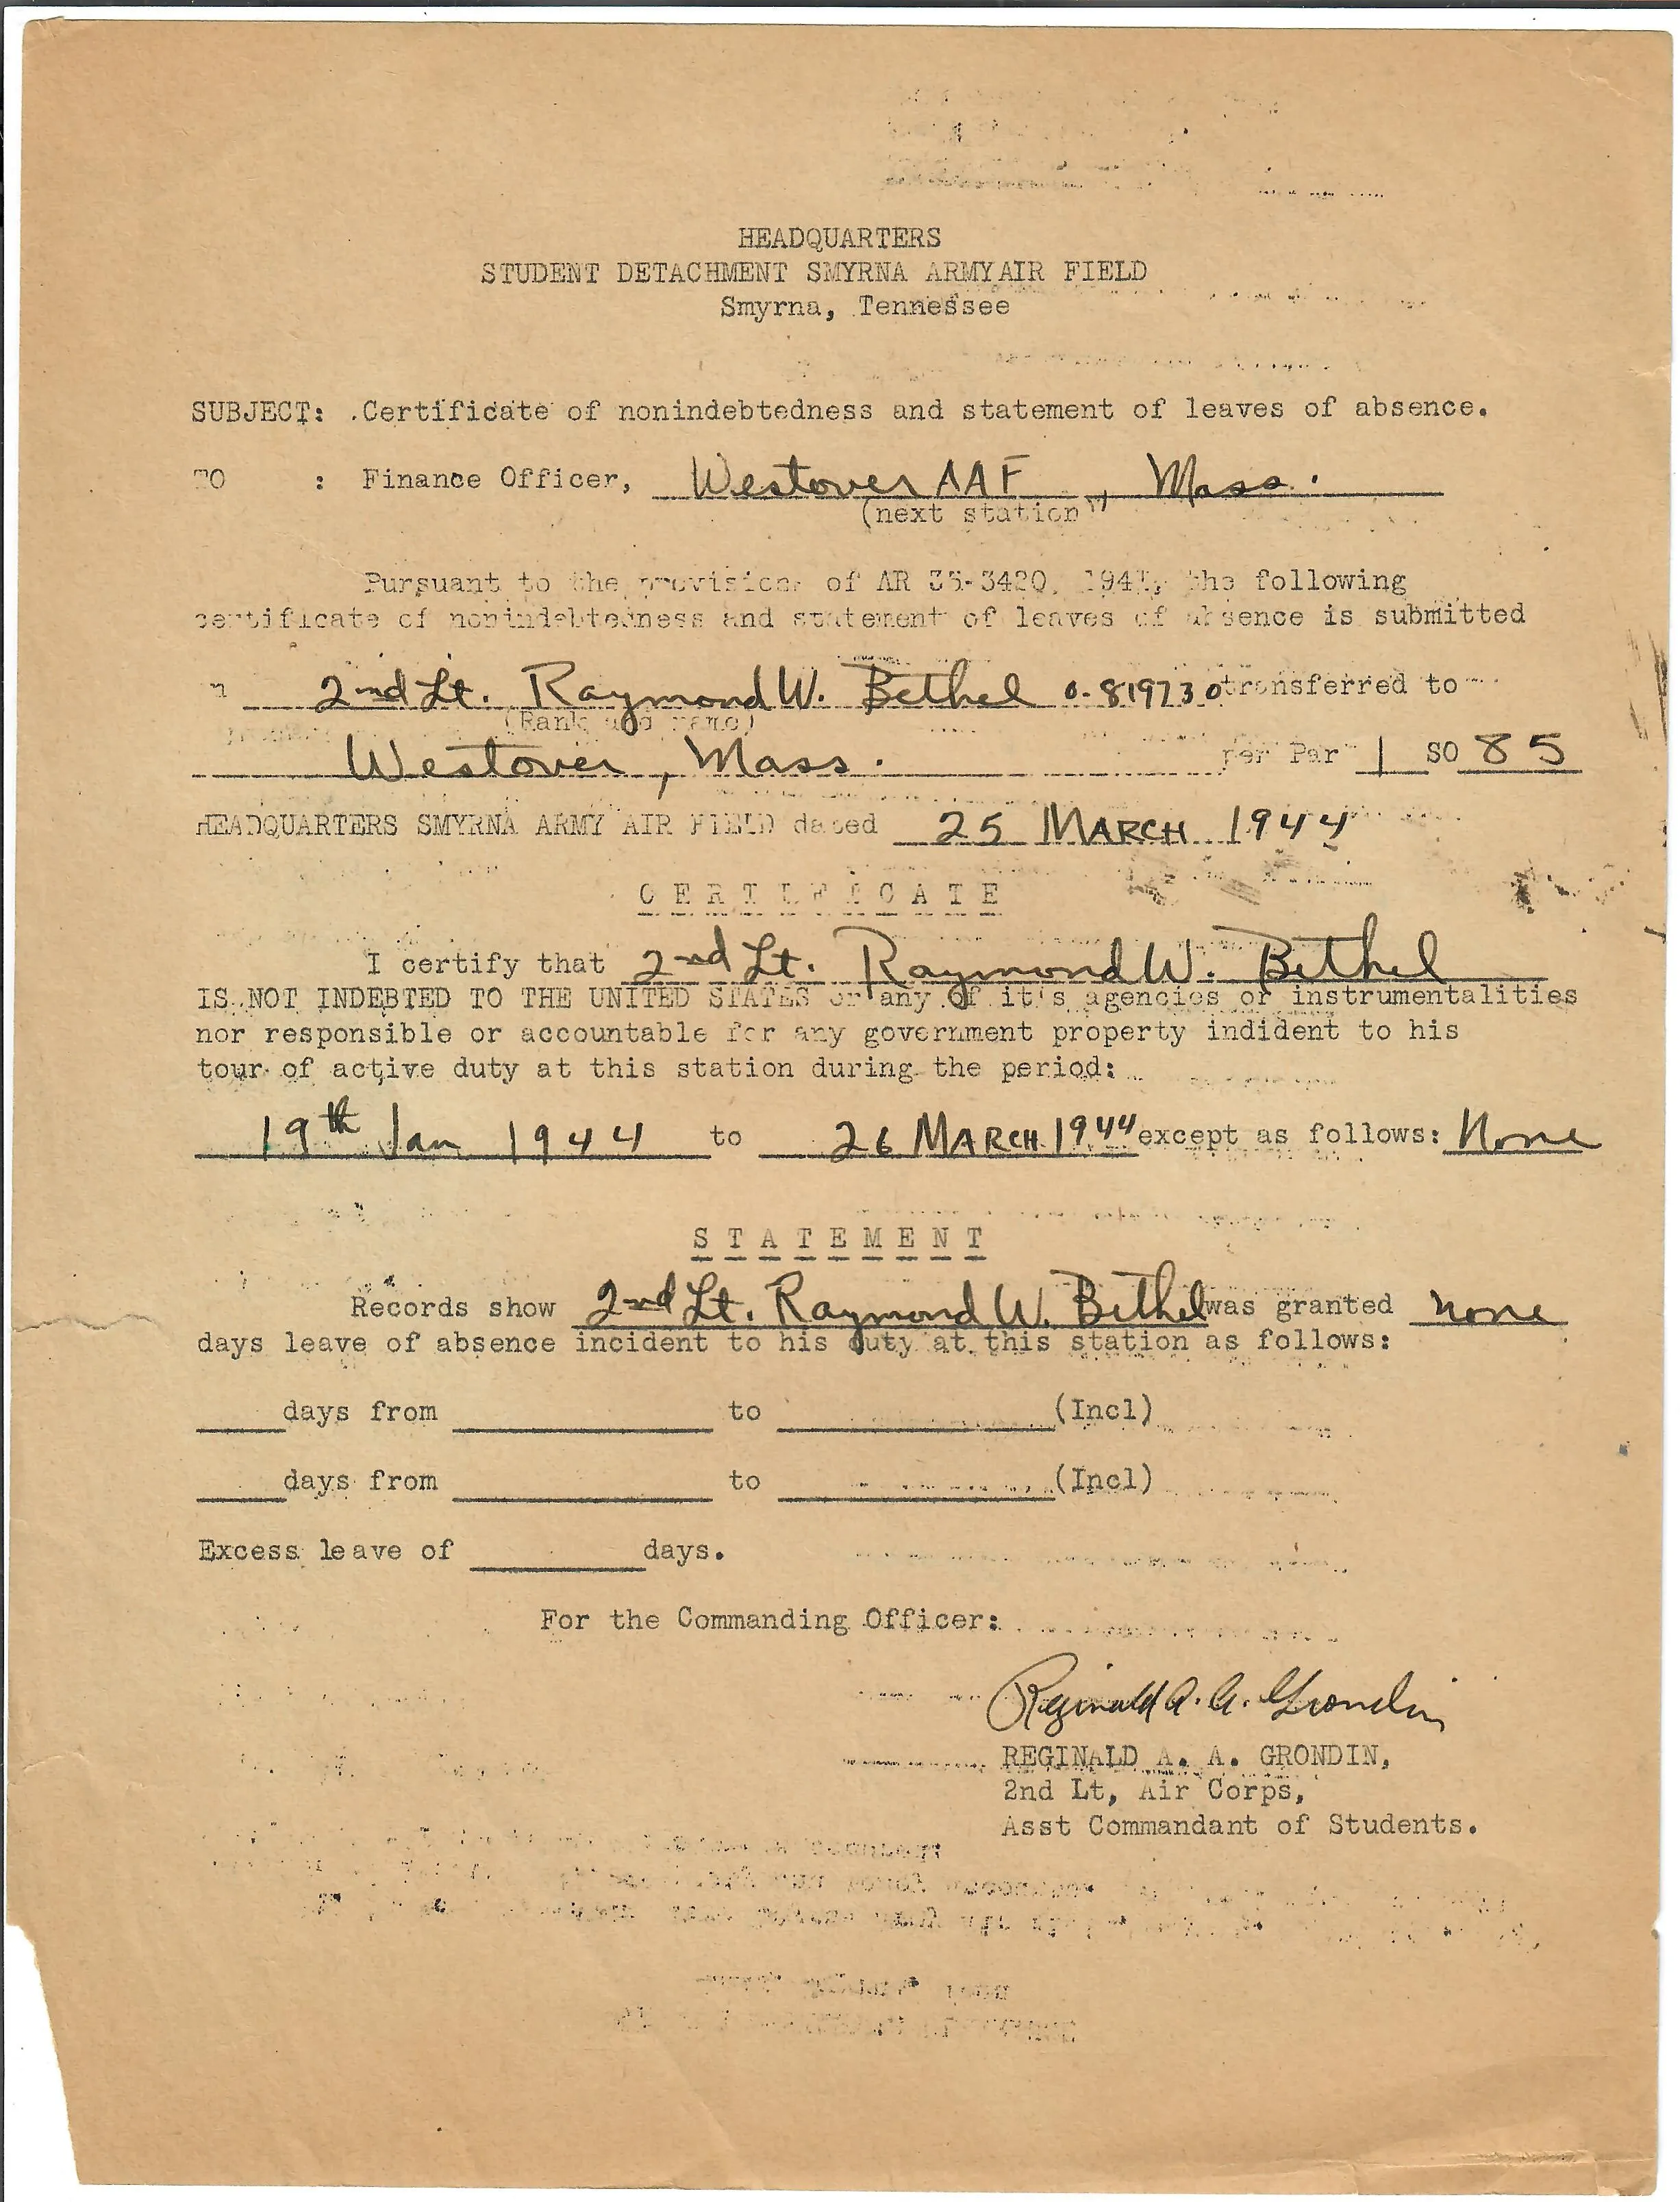 HEADQUARTERS
STUDENT DETACHMENT SMYRNA ARMY AIR FIELD
Smyrna, Tennessee
SUBJECT: Certificate of nonindebtedness and statement of leaves of absence.
TO : Finance Officer, Westover AAF, Mass.
(next station)
Pursuant to the provisions of AR 35-3420, the following
certificate of nonindebtedness and statement of leaves of absence is submitted
2nd Lt. Raymond W. Bethel 0-819730 transferred to
(Rank and name)
Westover, Mass. per Par 1 SO 85
HEADQUARTERS SMYRNA ARMY AIR FIELD dated 25 MARCH 1944
CERTIFICATE
I certify that 2nd Lt. Raymond W. Bethel
IS NOT INDEBTED TO THE UNITED STATES or any of it's agencies or instrumentalities
nor responsible or accountable for any government property indident to his
tour of active duty at this station during the period:
19th Jan 1944 to 26 MARCH 1944 except as follows: None
STATEMENT
Records show 2nd Lt. Raymond W. Bethel was granted none
days leave of absence incident to his duty at this station as follows:
days from to (Incl)
days from to (Incl)
Excess leave of days.
For the Commanding Officer:
Reginald A. A. Grondin
REGINALD A. A. GRONDIN,
2nd Lt, Air Corps,
Asst Commandant of Students.